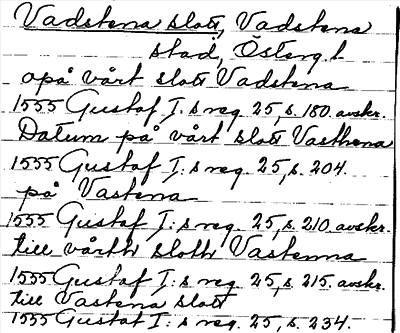 Vadstena slott, Vadstena
stad, Österg.l.
opå vårt slott Vadstena
1555 Gustaf I:s reg. 25, s. 180. avskr.
Datum på vårt slott Vasthena
1555 Gustaf I:s reg. 25, s. 204.
på Vastena
1555 Gustaf I:s reg. 25, s. 210. avskr.
till vårtt slott Vastenna
1555 Gustaf I:s reg. 25, s. 215. avskr.
till Vastena slott
1555 Gustaf I:s reg. 25, s. 234.